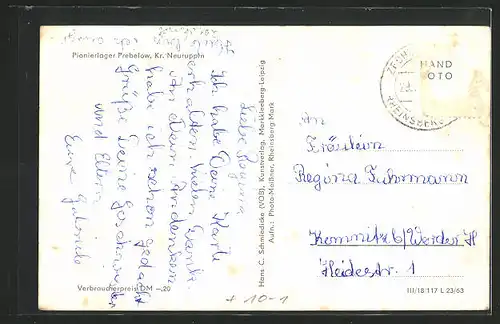 Pionierlager Prebelow, Kr. Neuruppin
Liebe Regina
Ich habe Deine Karte
erhalten. vielen Dank.
An Dein Andenken
hab ich schon gedacht
Grüße Deine Geschwister
und Eltern
Eure Gabriele
Verbraucherpreis DM –,20
Hans C. Schmiedicke (VOB), Kunstverlag, Markkleeberg-Leipzig
Aufn.: Photo-Meißner, Rheinsberg-Mark
HAND
OTO
RHEINSBERG
An
Fräulein
Regina Fuhrmann
Kemnitz b/Werder H
Heidestr. 1
III/18 117 L 23/63
+ 10-1